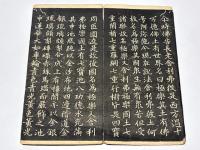 爾時佛告長老舍利弗從是西方過十
萬億佛土有世界名曰極樂其土有佛
號阿彌陀今現在說法舍利弗彼土何
故名為極樂其國眾生無有眾苦但受
諸樂故名極樂又舍利弗極樂國土七
重欄楯七重羅網七重行樹皆是四寶
周匝圍繞是故彼國名為極樂又舍利
弗極樂國土有七寶池八功德水充滿
其中池底純以金沙布地四邊階道金
銀琉璃玻瓈合成上有樓閣亦以金銀
琉璃玻瓈硨磲赤珠瑪瑙而嚴飾之池
中蓮華大如車輪青色青光黃色黃光